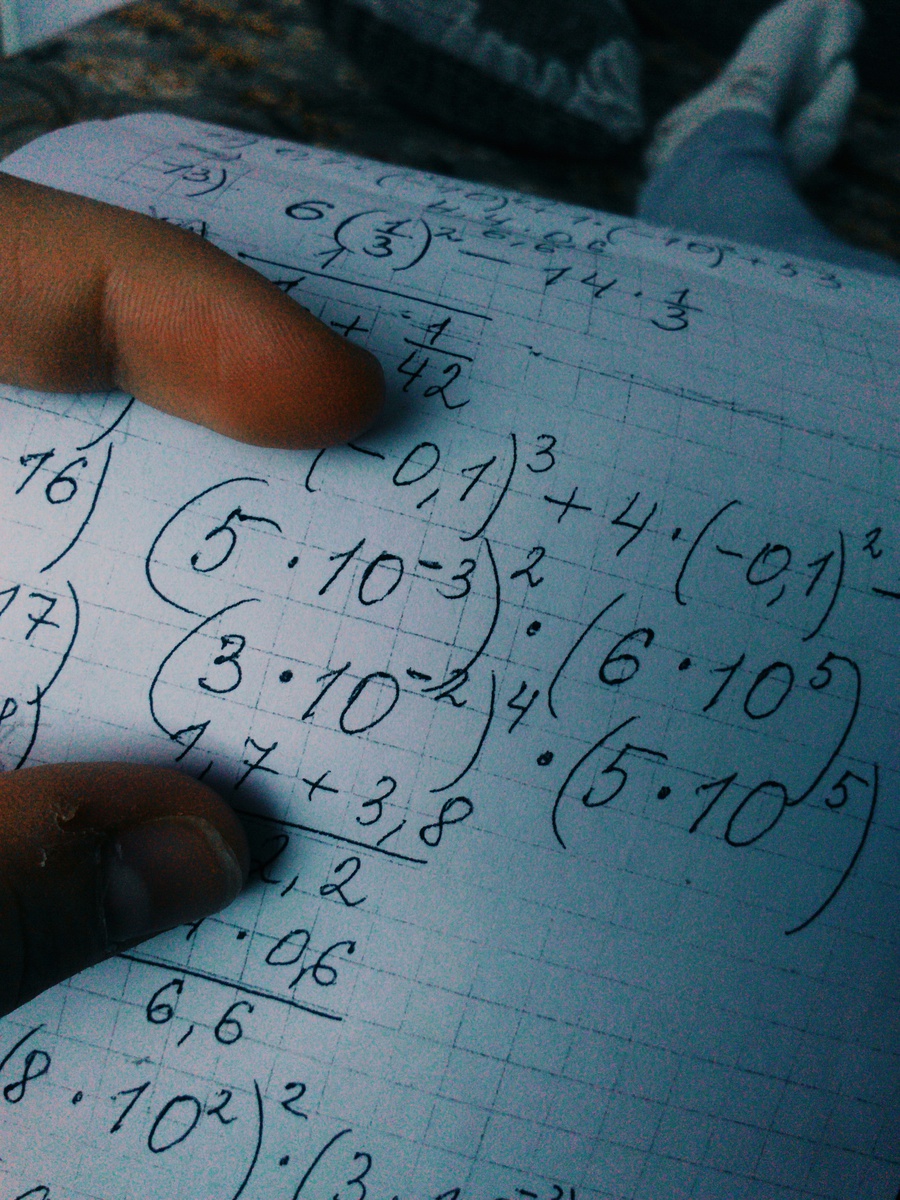 13) 6(1/3)² - 14 · 1/3
1
+ 1/42
(-0,1)³ + 4 · (-0,1)² -
16) (5 · 10⁻³)² · (6 · 10⁵)
17) (3 · 10⁻²)⁴ · (5 · 10⁵)
1,7 + 3,8
2,2
· 0,6
6,6
(8 · 10²)² · (3 ·